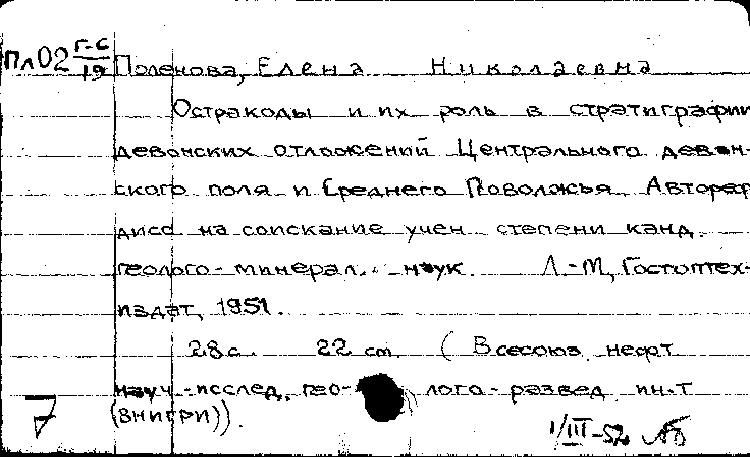 Пл02 Г-С/19 Поленова, Елена Николаевна
Остракоды и их роль в стратиграфии
девонских отложений Центрального девон-
ского поля и Среднего Поволжья. Автореф
дисс на соискание учен степени канд.
геолого-минерал. наук. Л.-М, Гостоптех-
издат, 1951.
28 с. 22 см. (Всесоюз. нефт
науч.-исслед. гео-лого-развед ин-т
(ВНИГРИ)).
7
1/III-52